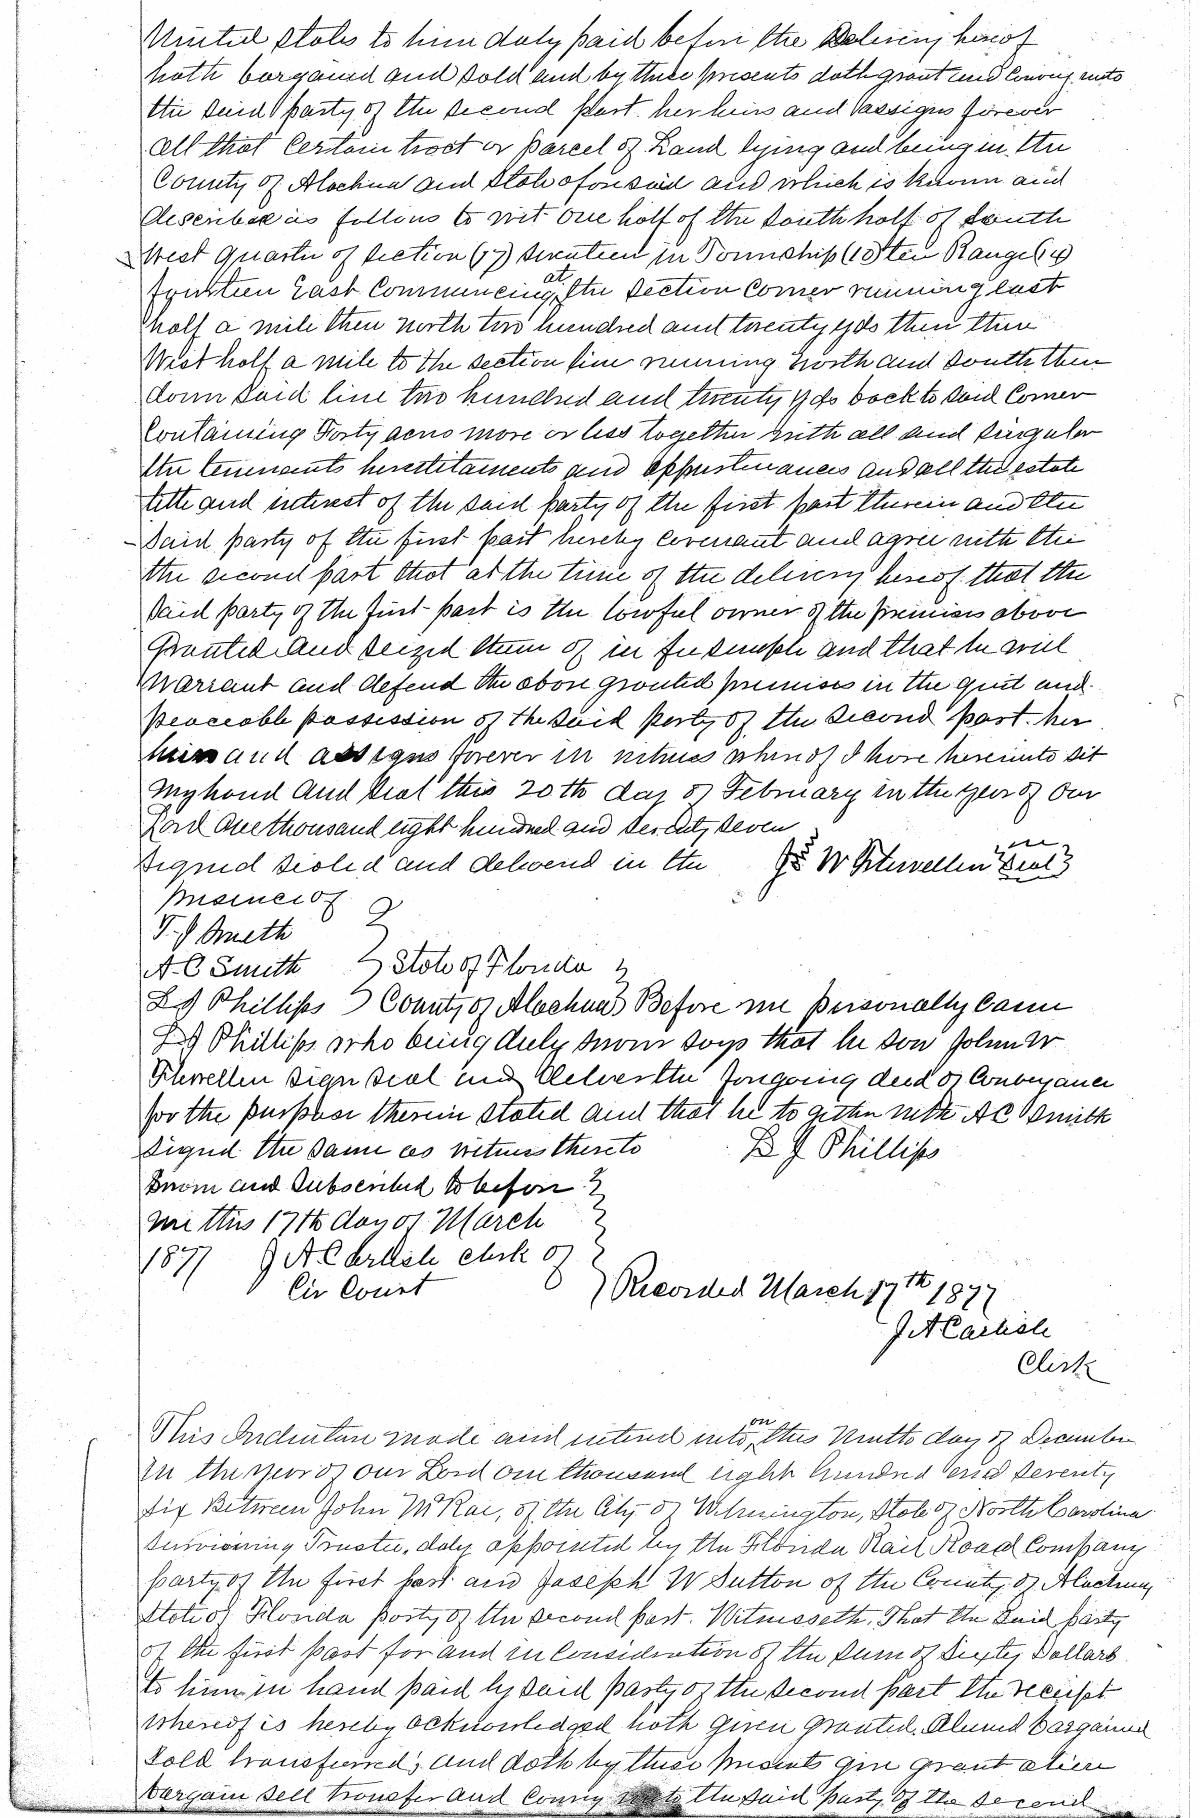 United States to him duly paid before the Delivery hereof
hath bargained and sold and by these presents doth grant and convey unto
the said party of the second part her heirs and assigns forever
all that certain tract or parcel of Land lying and being in the
County of Alachua and State aforesaid and which is known and
described as follows to wit one half of the south half of South
West Quarter of Section (17) seventeen in Township (10) ten Range (14)
fourteen East Commencing at the Section Corner running east
half a mile then north two hundred and twenty yds then
West half a mile to the section line running North and South then
down said line two hundred and twenty yds back to said Corner
Containing Forty acres more or less together with all and singular
the tenements hereditaments and appurtenances and all the estate
title and interest of the said party of the first part therein and the
said party of the first part hereby covenant and agree with the
the second part that at the time of the delivery hereof that the
said party of the first part is the lawful owner of the premises above
Granted and seized them of in fee simple and that he will
Warrant and defend the above granted premises in the quit and
peaceable possession of the said party of the second part her
heirs and assigns forever in witness whereof I have hereunto set
my hand and seal this 20th day of February in the year of Our
Lord one thousand eight hundred and seventy seven
Signed sealed and delivered in the W Fhewellen Seal
presence of
T J Smith
A C Smith State of Florida
L J Phillips County of Alachua Before me personally came
L J Phillips who being duly sworn says that he saw John W
Flewellen sign seal and deliver the foregoing deed of Conveyance
for the purpose therein stated and that he together with A C Smith
signed the same as witness thereto L J Phillips
Sworn and subscribed to before
me this 17th day of March
1877 J A Carlisle clerk of
Cir Court Recorded March 17th 1877
J A Carlisle
Clerk
This Indenture made and entered into on this Ninth day of December
in the year of our Lord one thousand eight hundred and seventy
six Between John McRae, of the City of Wilmington, State of North Carolina
Surviving Trustee, duly appointed by the Florida Rail Road Company
party of the first part and Joseph W Sutton of the County of Alachua
State of Florida party of the second part. Witnesseth, That the Said party
of the first part for and in consideration of the sum of Sixty Dollars
to him in hand paid by said party of the second part the receipt
whereof is hereby acknowledged hath given granted, aliened bargained
sold transferred, and doth by these presents give grant alien
bargain sell transfer and convey unto the said party of the second